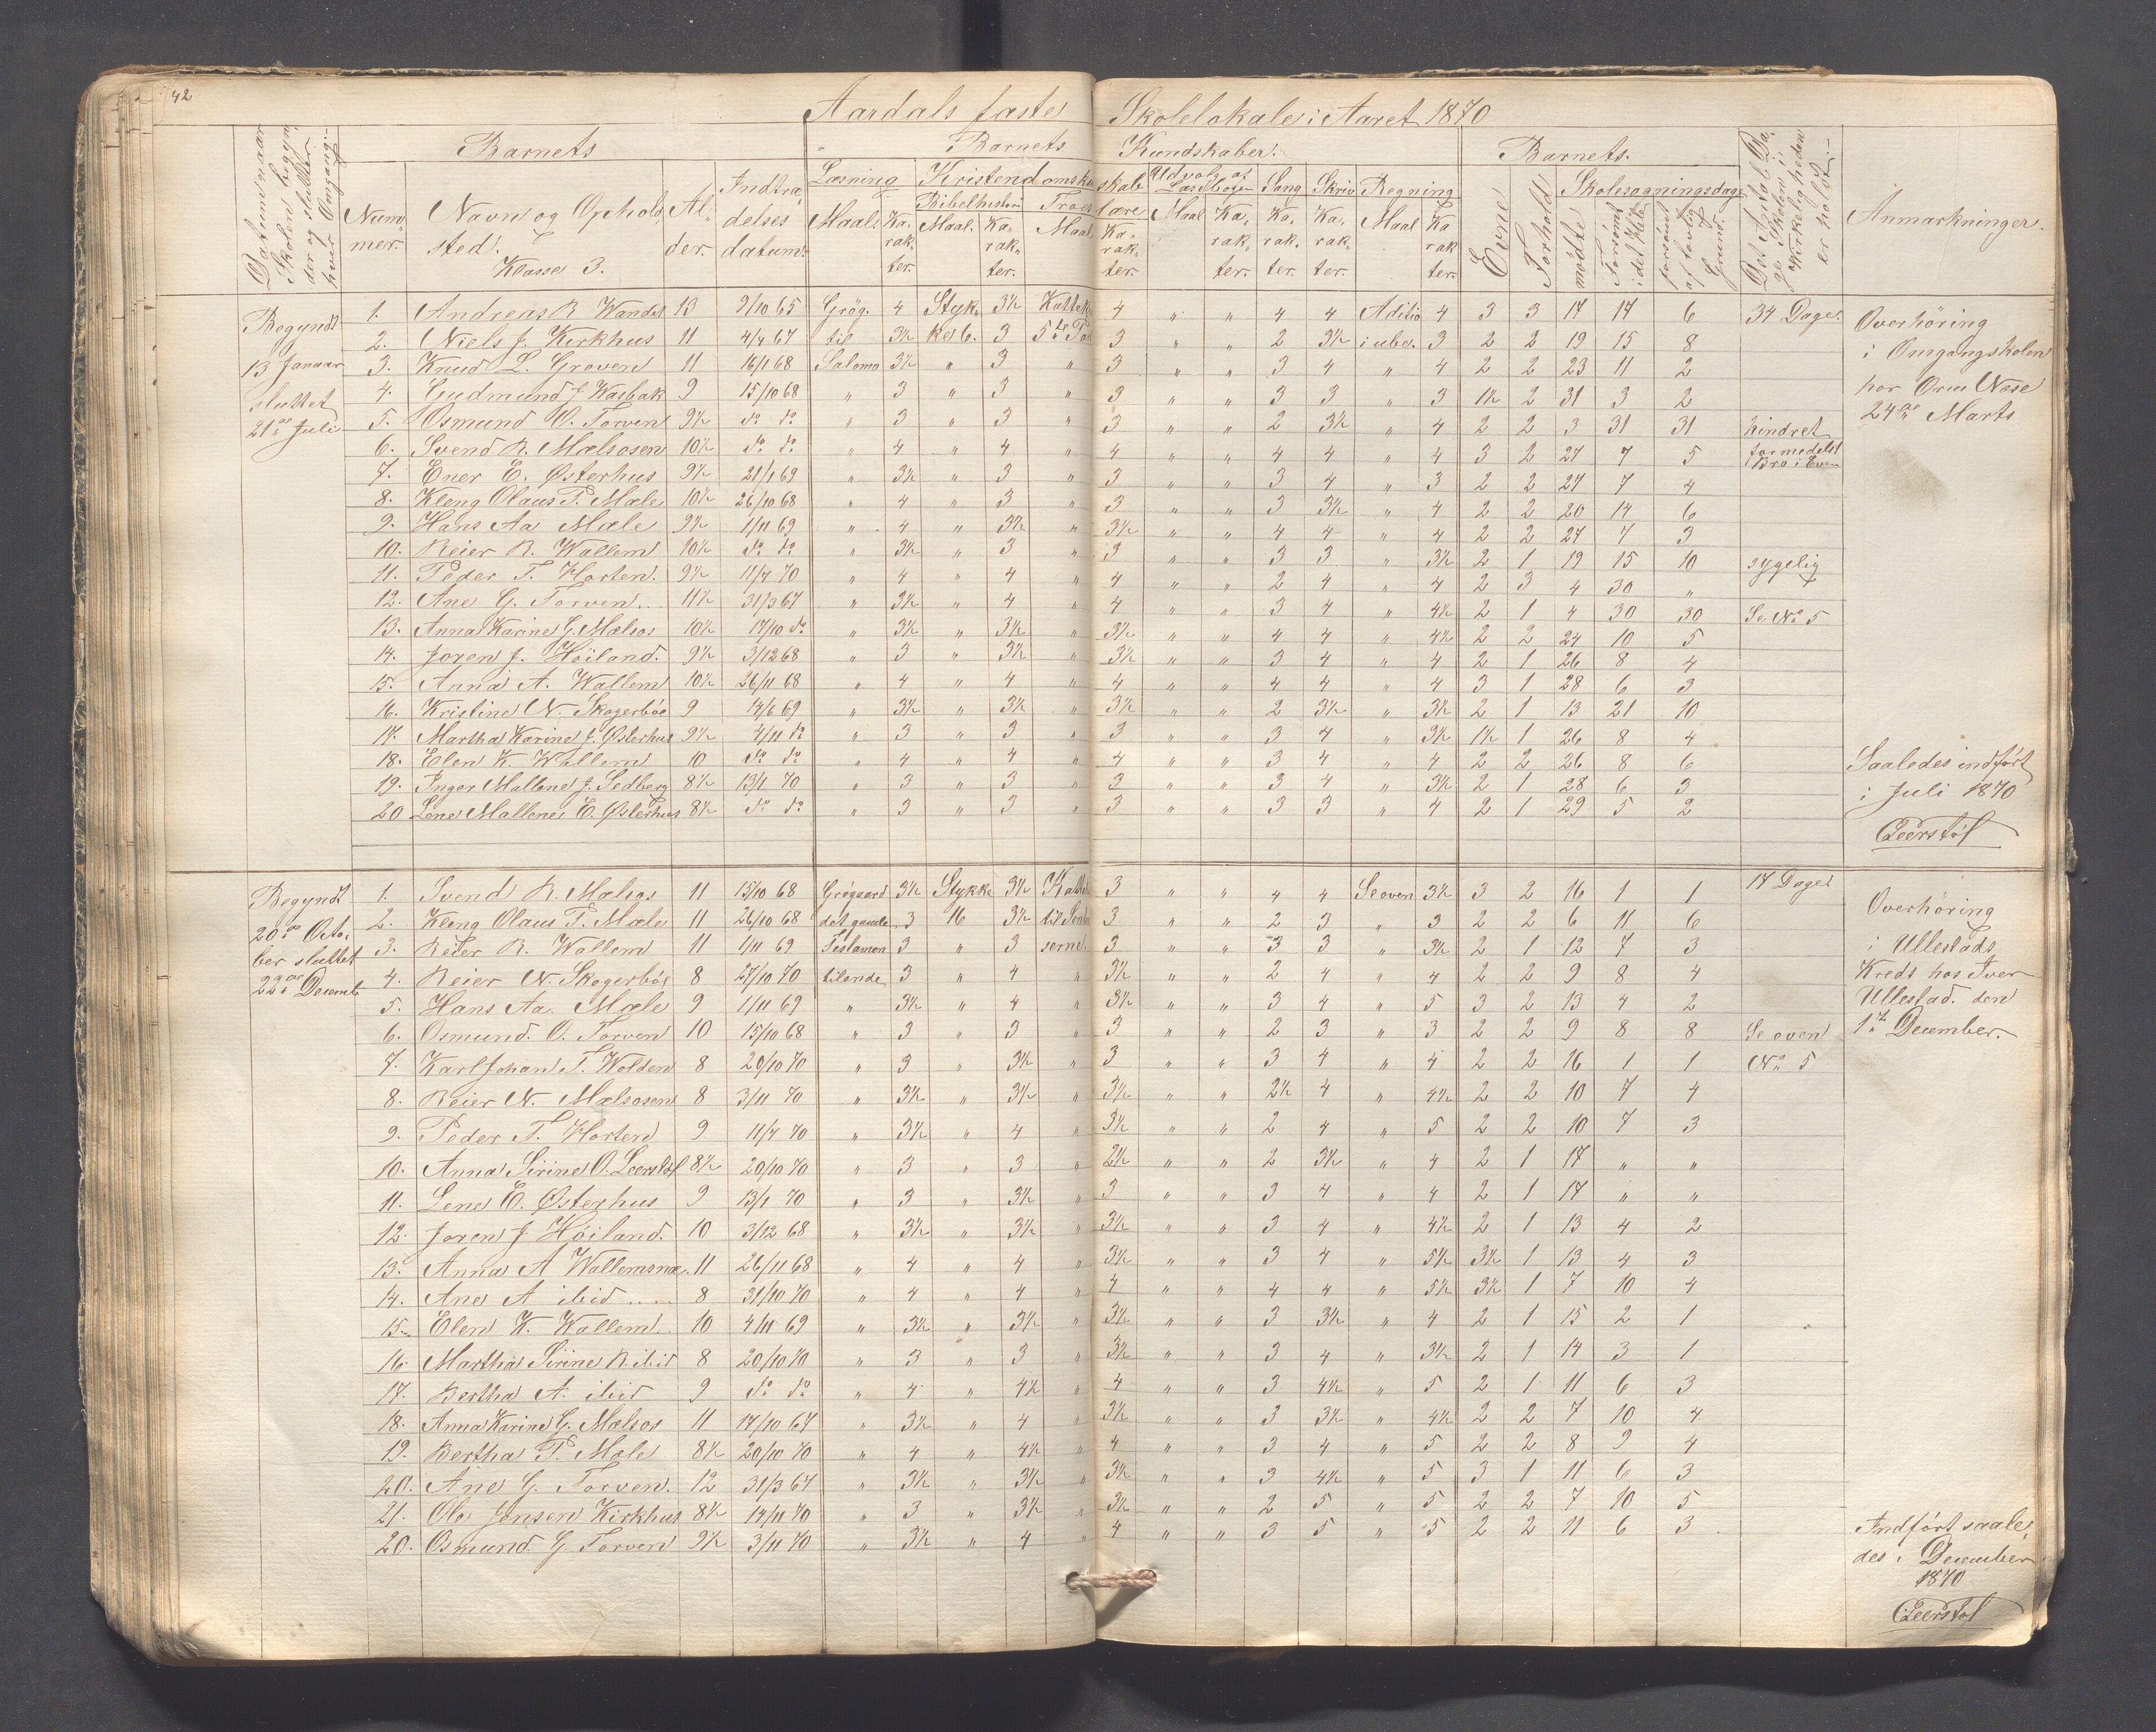 42
Aardals faste Skolelokale i Aaret 1870
Datum naar Skolen begynder og slutter hver Omgang.
Barnets
Nummer. Navn og Opholdsted. Klasse 3. Alder. Indtrædelses datum.
Barnets Kundskaber.
Læsning Maal. Karakter. Kristendomskundskab Bibelhistorie Maal. Karakter. Troeslære Maal Karakter. Udvalg af Læsebogen Maal Karakter. Sang Karakter. Skriv Karakter. Regning Maal Karakter.
Barnets.
Evne Forhold Skolesøgningsdage mødte Forsømt i det Hele forsømt af lovlig Grund.
Det Antal Dage Skolen i Virkeligheden er holdt.
Anmærkninger.
Begyndt 13 Januar sluttet 21de Juli
1. Andreas R Wandes 13 9/10 65 Grøg. 4 Styk. 3½ 4 " " 4 4 Aditio 4 3 3 17 17 6 34 Dage.
2. Niels J. Kirkhus 11 4/4 67 til 3½ 3 3 " " 2 3½ 3 2 2 19 15 8
3. Knud L. Groven 11 16/1 68 Salomo 3½ " 3 " 3 " " 3 4 " 4 2 2 23 11 2
4. Gudmund J Waibak 9 15/10 68 " 3 " 3 " 3 " " 3 3 " 3 1½ 2 31 3 2
5. Osmund O. Torven 9½ do do " 3 " 3 " 3 " " 2 3½ " 4 2 2 3 31 31 hindret
6. Svend R. Mælsosen 10½ do do " 4 " 4 " 4 " " 4 4 " 4 3 2 27 7 5 formedelst Bro i Even
7. Ener E. Østerhus 9½ 21/1 69 " 3½ " 3 " 3 " " 3 4 " 3 2 2 27 7 4
8. Kleng Olaus T. Mæle 10½ 26/10 68 " 4 " 3 " 3 " " 3 3½ " 4 2 2 20 14 6
9. Hans Aa Mæle 9½ 1/11 69 " 4 " 3½ " 3½ " " 4 4 " 4 2 2 27 7 3
10. Reier R. Wallem 10½ do do " 3½ " 3 " 3 " " 3 3 " 3½ 2 1 19 15 10 sygelig
11. Peder T. Horten. 9½ 11/4 70 " 4 " 4 " 4 " " 2 4 " 4 2 3 4 30 "
12. Ane G. Torven 11½ 31/3 67 " 3½ " 4 " 4 " " 3 4 " 4½ 2 1 4 30 30 Se No 5
13. Anna Karine G. Mælsos 10½ 17/10 do " 3½ " 3½ " 3½ " " 4 4 " 4½ 2 2 24 10 5
14. Joren J. Høiland. 9½ 3/12 68 " 3 " 3½ " 3½ " " 3 4 " 4 2 1 26 8 4
15. Anna A. Wallem 10½ 26/11 68 " 4 " 4 " 4 " " 4 4 " 4 3 1 28 6 3
16. Kristine N. Skogerbøe 9 14/6 69 " 3½ " 3½ " 3½ " " 2 3½ " 3½ 2 1 13 21 10
17. Martha Karine J. Østerhus 9½ 4/11 do " 3 " 3 " 3 " " 3 4 " 3½ 1½ 1 26 8 4
18. Elen K. Wallem 10 do do " 4 " 4 " 4 " " 3 4 " 4 2 2 26 8 6
19. Inger Mallene J. Sedberg 8½ 13/1 70 " 3 " 3 " 3 " " 3 4 " 3½ 2 1 28 6 3
20 Lene Mallene E. Østerhus 8½ do do " 3 " 3 " 3 " " 3 3 " 4 2 1 29 5 2
Overhöring
i Omgangskolen
hos Orm Næse
24de Marts
Saaledes indført
i Juli 1870
Leerstøl
Begyndt 20de October sluttet 22de Decemb
1. Svend R. Mælsos 11 15/10 68 Grøgaard 3½ Stykke 3½ 3 " " 4 4 Se oven 3½ 3 2 16 1 1 17 Dage
2. Kleng Olaus T. Mæle 11 26/10 68 det gamle 3 16 3½ 3 " " 2 3 " 3 2 2 6 11 6
3. Reier R. Wallem 11 1/11 69 Testamen 3 " 3 serne. 3 " " 3 3 " 3½ 2 1 12 7 3
4. Reier N. Skogerbøe 8 27/10 70 tilende 3 " 4 " 3½ " " 2 4 " 4 2 2 9 8 4
5. Hans Aa. Mæle 9 1/11 69 " 3½ " 4 " 3½ " " 3 4 " 5 3 2 13 4 2
6. Osmund. O. Torven 10 15/10 68 " 3 " 3 " 3 " " 2 3 " 3 2 2 9 8 8 Se oven
7. Karl Johan T. Wolden 8 20/10 70 " 3 " 3½ " 3 " " 3 4 " 4 2 2 16 1 1 No 5
8. Reier N. Mælsosen 8 3/11 70 " 3½ " 3½ " 3½ " " 2½ 4 " 4½ 2 2 10 7 4
9. Peder T. Horten 9 11/4 70 " 3½ " 4 " 3½ " " 2 4 " 5 2 2 10 7 3
10. Anna Sirine O. Leerstøl 8½ 20/10 70 " 3 " 3 " 2½ " " 2 3½ " 4 2 1 17 " "
11. Lene E. Østerhus 9 13/1 70 " 3 " 3½ " 3 " " 3 4 " 4 2 1 17 " "
12. Joren J Høiland. 10 3/12 68 " 3½ " 3½ " 3½ " " 3 4 " 4½ 2 1 13 4 2
13. Anna A Wallemsnæ. 11 26/11 68 " 4 " 4 " 3½ " " 3 4 " 5½ 3½ 1 13 4 3
14. Ane A ibid 8 31/10 70 " 4 " 4 " 4 " " 4 4 " 5½ 3½ 1 7 10 4
15. Elen K. Wallem 10 4/11 69 " 3½ " 3½ " 3½ " " 3 3½ " 4 2 1 15 2 1
16. Martha Sirine R. ibid 8 20/10 70 " 3 " 3 " 3½ " " 3 4 " 3½ 2 1 14 3 1
17. Bertha A. ibid 9 do do " 4 " 4½ " 4 " " 3 4½ " 5 2 1 11 6 3
18. Anna Karine G. Mælsos 11 17/10 67 " 3½ " 4 " 3½ " " 3 3½ " 4½ 2 2 7 10 4
19. Bertha T. Mæle 8½ 20/10 70 " 4 " 4½ " 4 " " 3 4 " 5 2 2 8 9 4
20. Ane G. Torven. 12 31/3 67 " 3½ " 3½ " 3½ " " 3 4½ " 5 3 1 11 6 3
21. Ole Jensen Kirkhus 8½ 14/11 70 " 3 " 3½ " 3½ " " 2 5 " 5 2 2 7 10 5
20. Osmund G. Torven 9½ 3/11 70 " 3½ " 4 " 4 " " 3 5 " 5 2 2 11 6 3
Overhöring
i Ullestads
Kreds hos Iver
Ullestad. den
1ste December.
Indført saale
des i December
1870
Leerstøl